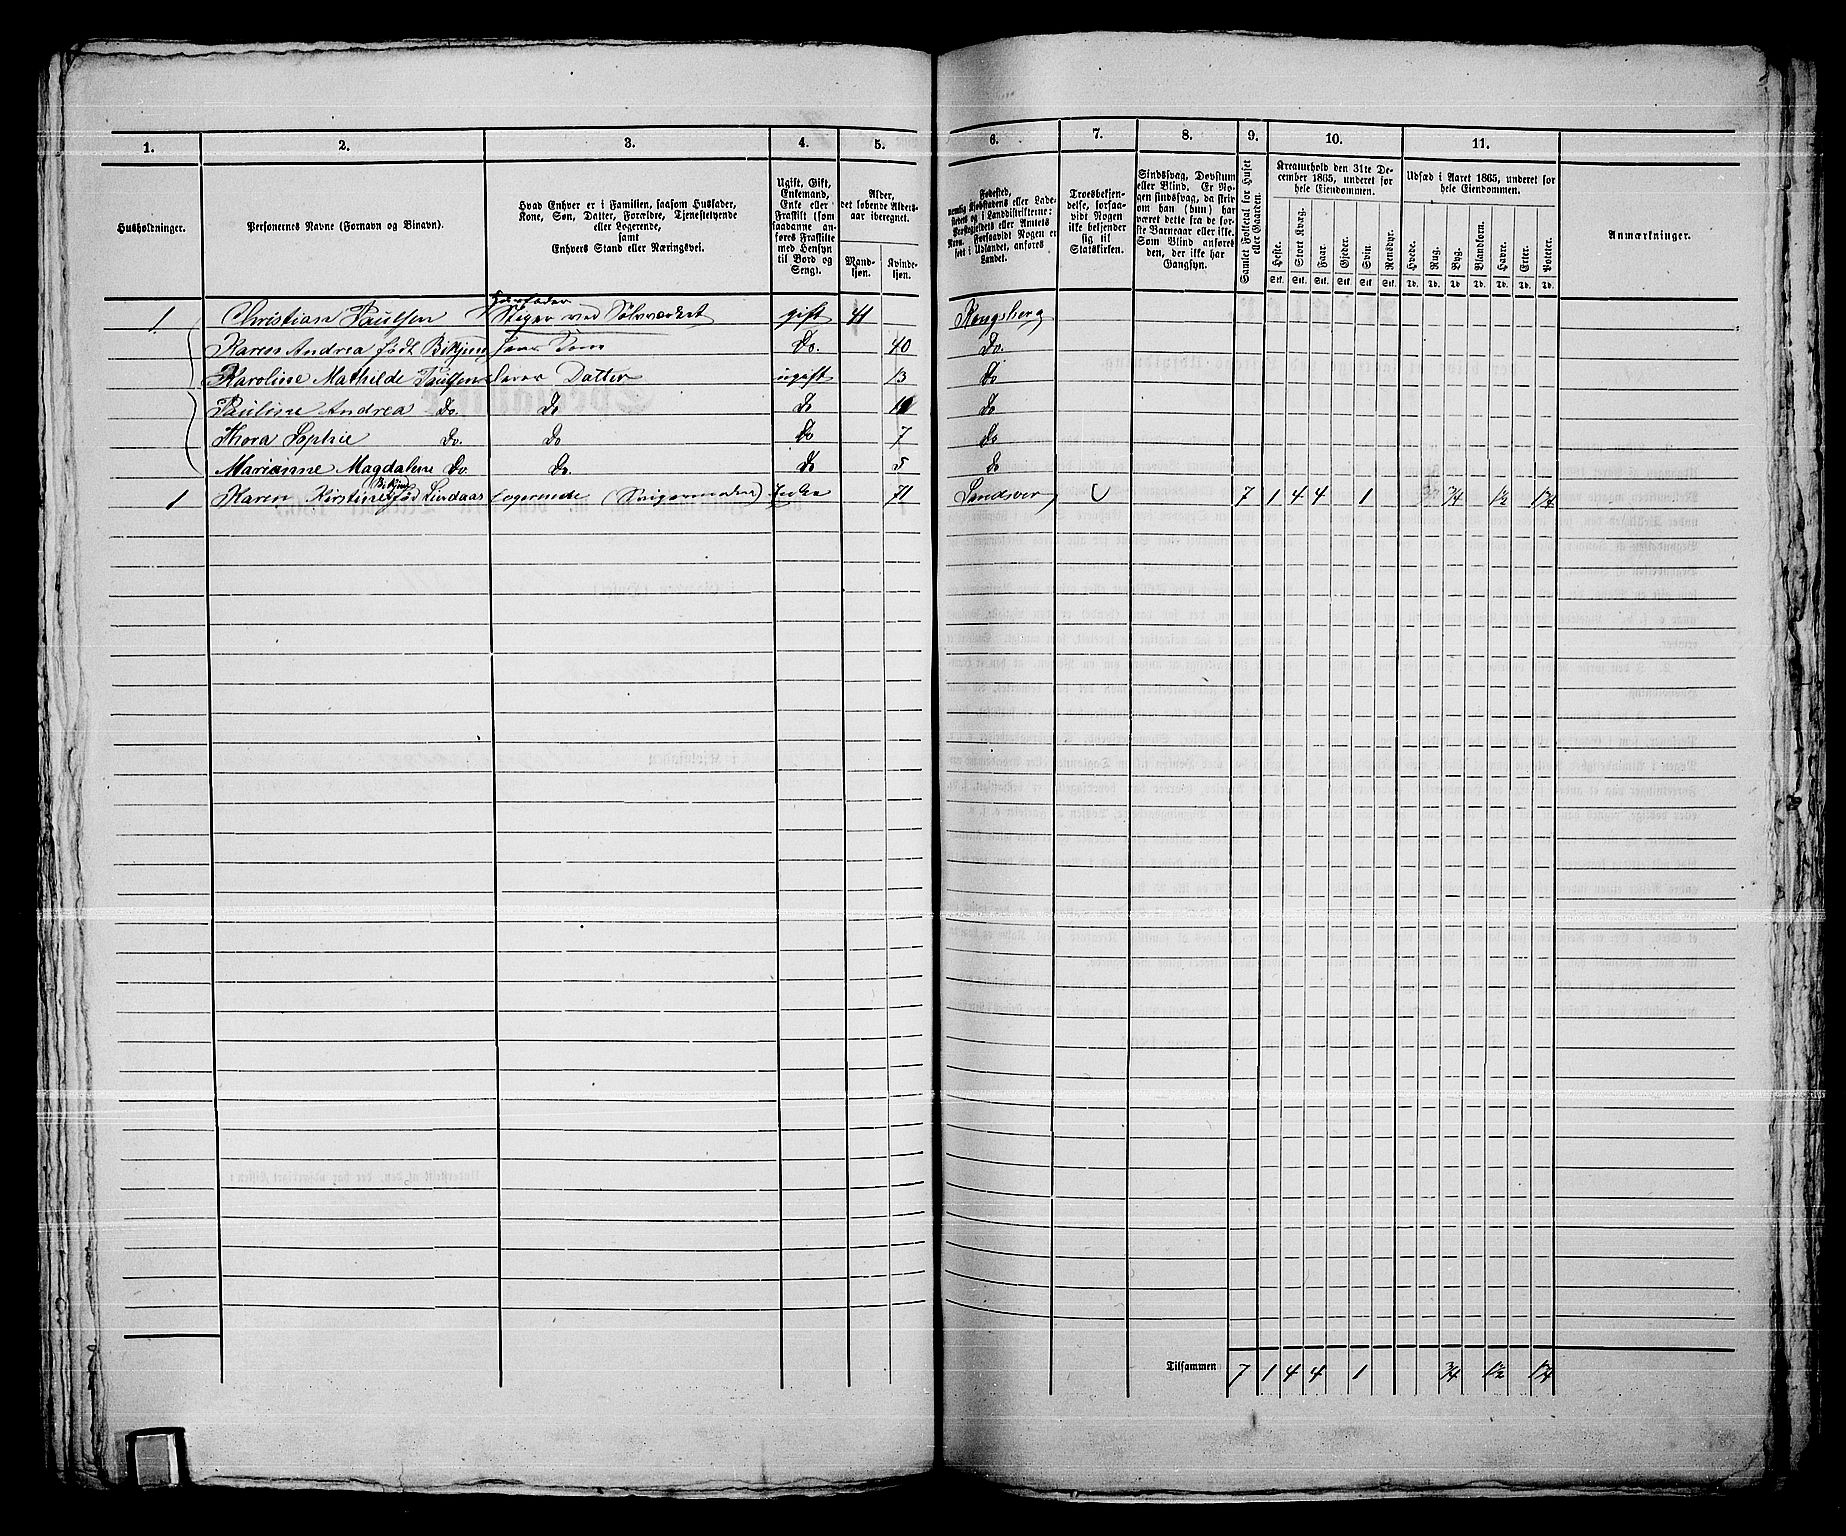 1. 2. 3. 4. 5. 6. 7. 8. 9. 10. 11.
Husholdninger.
Personernes Navne (Fornavn og Binavn).
Hvad Enhver er i Familien, saasom Husfader,
Kone, Søn, Datter, Forældre, Tjenestetyende
eller Logerende,
samt
Enhvers Stand eller Næringsvei.
Ugift, Gift,
Enkemand,
Enke eller
Fraskilt (som
saadanne an-
føres Fraskilte
med Hensyn
til Bord og
Seng).
Alder,
det løbende Alders-
aar iberegnet.
Mand-
kjøn.
Kvinde-
kjøn.
Fødested,
nemlig Kjøbstadens eller Lade-
stedets og i Landdistrikterne:
Præstegjeldets eller Amtets
Navn. Forsaavidt Nogen er
født i Udlandet, anføres
Landet.
Troesbekjen-
delse, forsaa-
vidt Nogen
ikke bekjender
sig til
Statskirken.
Sindssvag, Døvstum
eller Blind. Er No-
gen sindssvag, da skriv
om han (hun) har
været dette fra de før-
ste Barneaar eller ikke.
Som Blind anføres
den, der ikke har
Gangsyn.
Samlet Folketal for Huset
eller Gaarden.
Kreaturhold den 31te De-
cember 1865, underet for
hele Eiendommen.
Heste. Stort Kvæg. Faar. Gjeder. Svin. Rensdyr.
Stk. Stk. Stk. Stk. Stk. Stk.
Udsæd i Aaret 1865, underet for
hele Eiendommen.
Hvede. Rug. Byg. Blandkorn. Havre. Erter. Poteter.
Td. Td. Td. Td. Td. Td. Td.
Anmærkninger.
Huusfader
1. Christian Paulsen Stiger ved Sølvværket gift 41 Kongsberg
Karen Andrea født Bikjern hans Kone Do. 40 Do.
Karoline Mathilde Paulsen deres Datter ugift 13 Do
Pauline Andrea Do. Do Do Do
Thora Sophie Do. Do Do 7 Do
Marianne Magdalene Do. Do. Do 5 Do
1 Karen Kirstine født Lindaas Logerende Enke 71 Sandsver 7 1 4 4 1 3/4 1 1/2 1 1/4
Tilsammen 7 1 4 4 1 3/4 1 1/2 1 1/4